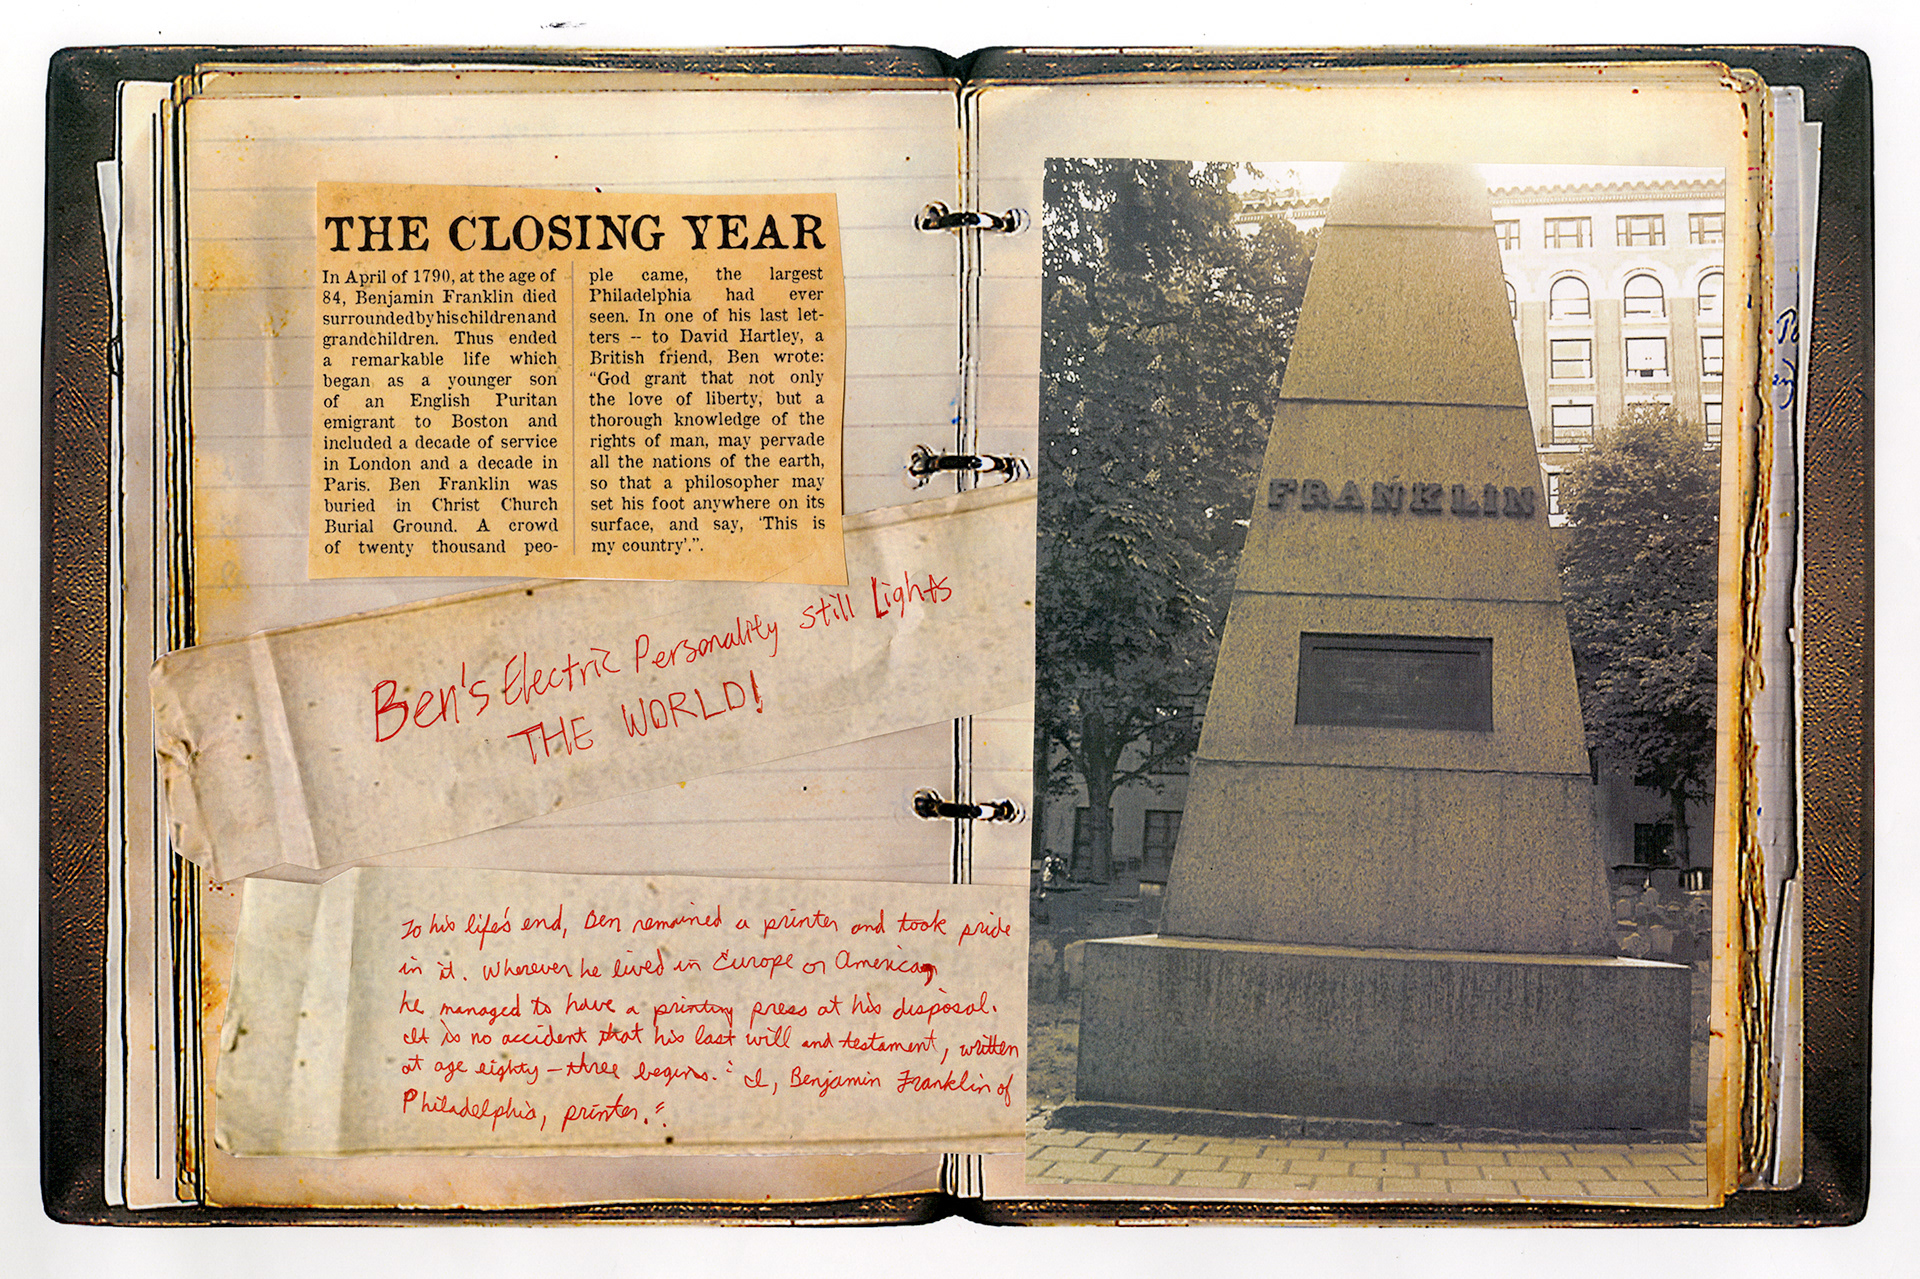 THE CLOSING YEAR
In April of 1790, at the age of
84, Benjamin Franklin died
surroundedbyhischildrenand
grandchildren. Thus ended
a remarkable life which
began as a younger son
of an English Puritan
emigrant to Boston and
included a decade of service
in London and a decade in
Paris. Ben Franklin was
buried in Christ Church
Burial Ground. A crowd
of twenty thousand peo-
ple came, the largest
Philadelphia had ever
seen. In one of his last let-
ters -- to David Hartley, a
British friend, Ben wrote:
“God grant that not only
the love of liberty, but a
thorough knowledge of the
rights of man, may pervade
all the nations of the earth,
so that a philosopher may
set his foot anywhere on its
surface, and say, ‘This is
my country’.”.
Ben's Electric Personality still Lights
THE WORLD!
To his life's end, Ben remained a printer and took pride
in it. Wherever he lived in Europe or America,
he managed to have a printing press at his disposal.
It is no accident that his last will and testament, written
at age eighty-three begins. " I, Benjamin Franklin of
Philadelphia, printer. "
FRANKLIN